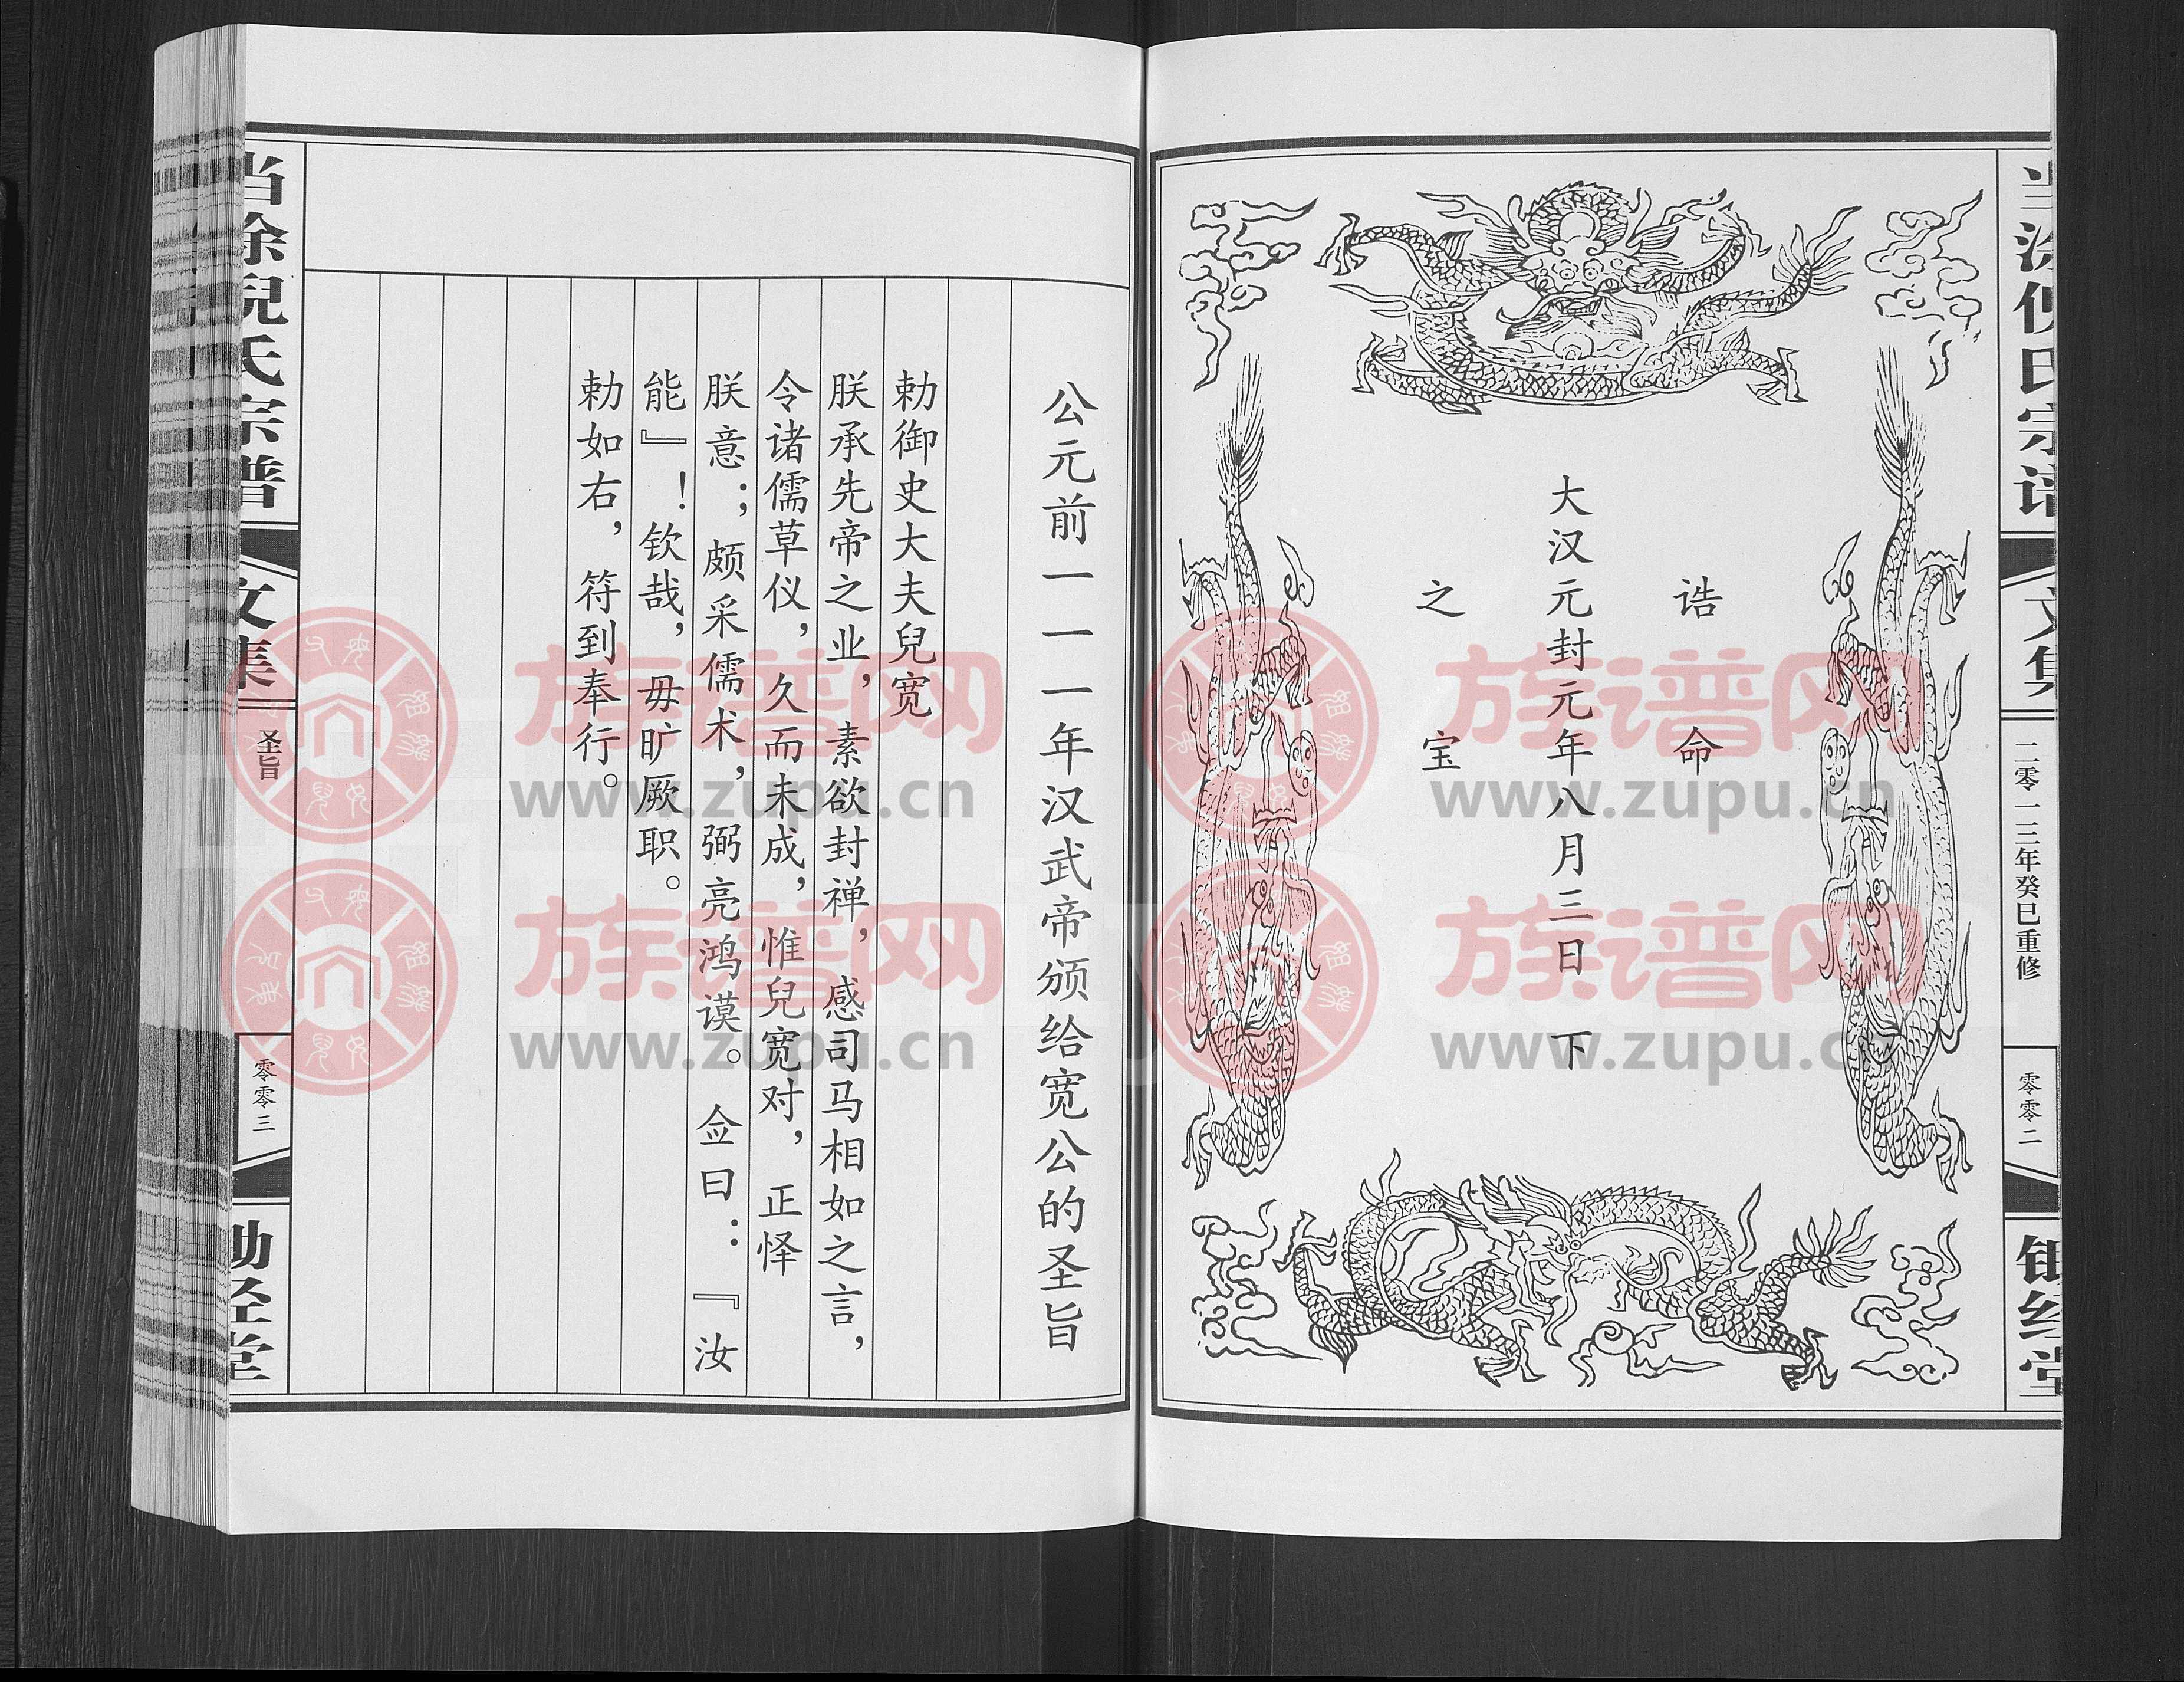 当涂倪氏宗谱
文集
二零一三年癸巳重修
零零二
锄经堂
诰命
大汉元封元年八月三日下
之宝
公元前一一一年汉武帝颁给宽公的圣旨
勅御史大夫兒宽
朕承先帝之业，素欲封禅，感司马相如之言，
令诸儒草仪，久而未成，惟兒宽对，正怿
朕意；颇采儒术，弼亮鸿谟。佥曰：『汝
能』！钦哉，毋旷厥职。
勅如右，符到奉行。
当涂倪氏宗谱
文集
圣旨
零零三
锄经堂
族谱网
www.zupu.cn
族谱网
www.zupu.cn
族谱网
www.zupu.cn
族谱网
www.zupu.cn